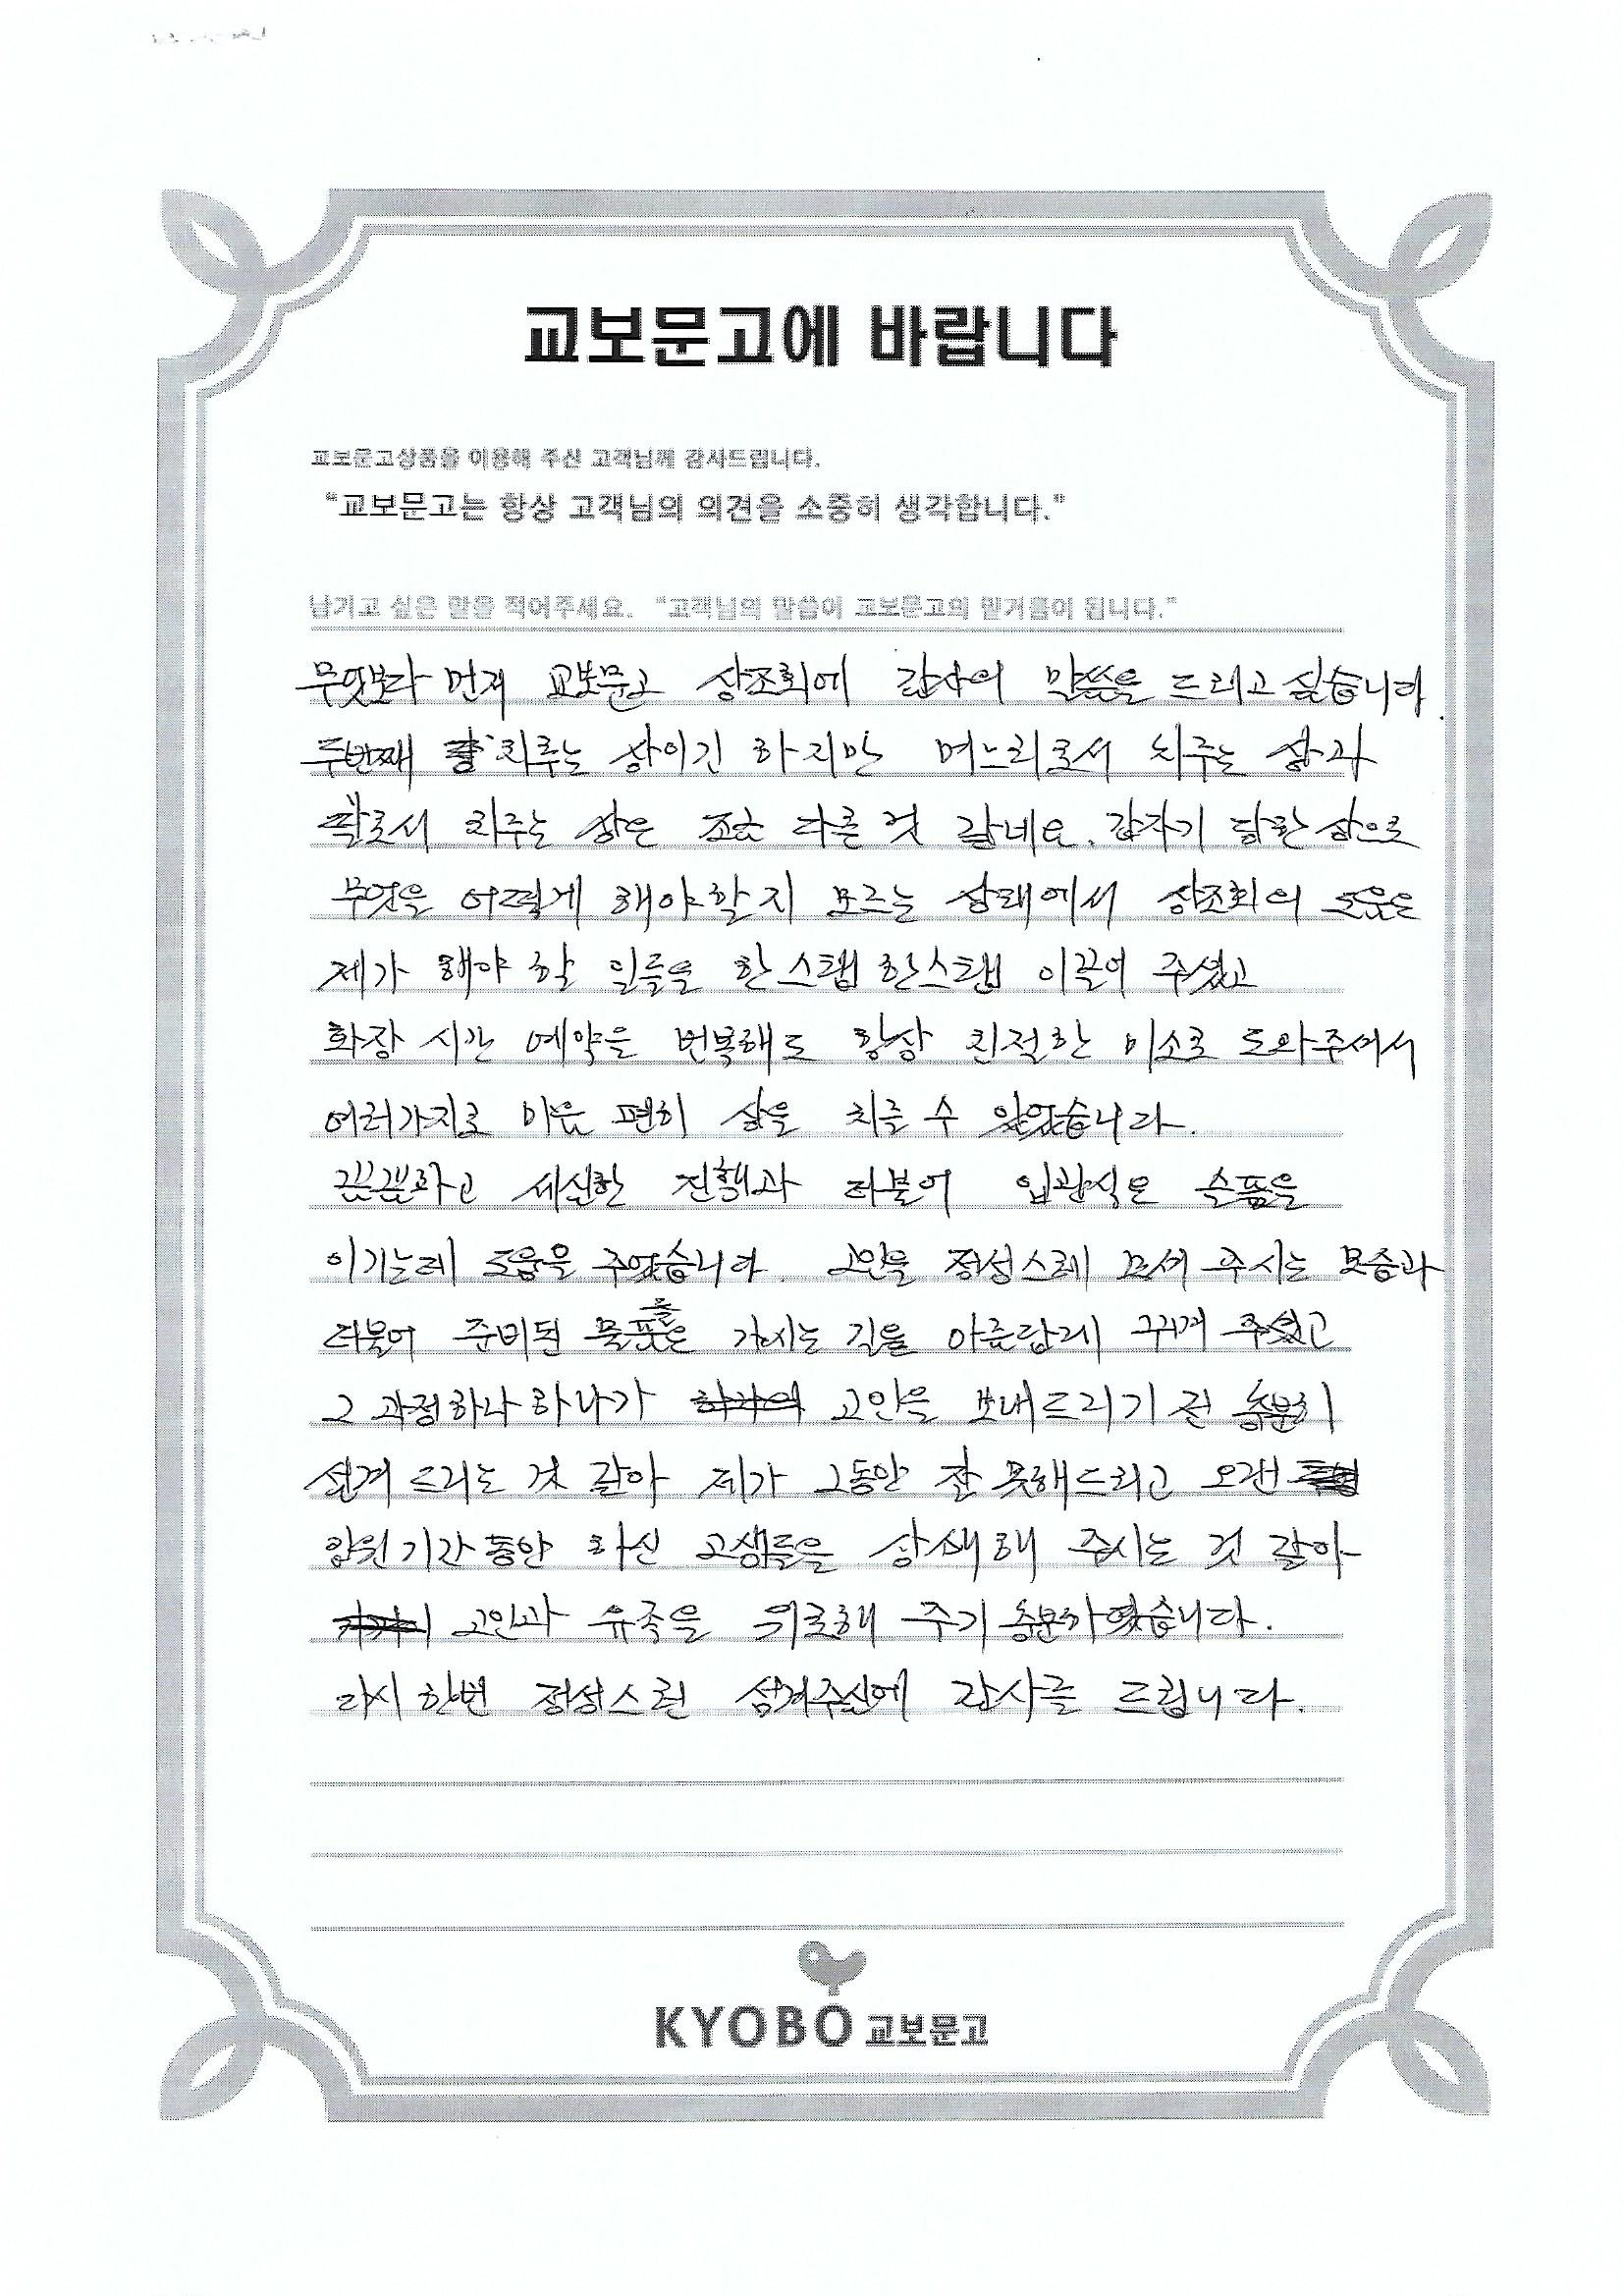 교보문고에 바랍니다
교보문고상품을 이용해 주신 고객님께 감사드립니다.
“교보문고는 항상 고객님의 의견을 소중히 생각합니다.”
남기고 싶은 말을 적어주세요. “고객님의 말씀이 교보문고의 밑거름이 됩니다.”
무엇보다 먼저 교보문고 상조회에 감사의 말씀을 드리고 싶습니다.
두번째 치루는 상이긴 하지만 며느리로서 치루는 상과
딸로서 치루는 상은 조금 다른 것 같네요. 갑자기 당한 상으로
무엇을 어떻게 해야할지 모르는 상태에서 상조회의 도움은
제가 해야 할 일들을 한스탭 한스탭 이끌어 주셨고
화장 시간 예약을 번복해도 항상 친절한 미소로 도와주셔서
여러가지로 마음 편히 상을 치를 수 있었습니다.
끈끈하고 세심한 진행과 더불어 입관식은 슬픔을
이기는데 도움을 주었습니다. 고인을 정성스레 모셔 주시는 모습과
더불어 준비된 물품들은 가시는 길을 아름답게 꾸며 주셨고
그 과정하나 하나가 고인을 보내드리기 전 충분히
섬겨 드리는 것 같아 제가 그동안 잘 못해드리고 오랜
암원기간동안 하신 고생들을 상쇄해 주시는 것 같아
고인과 유족을 위로해 주기 충분하였습니다.
다시 한번 정성스런 섬겨주심에 감사를 드립니다.
KYOBO 교보문고